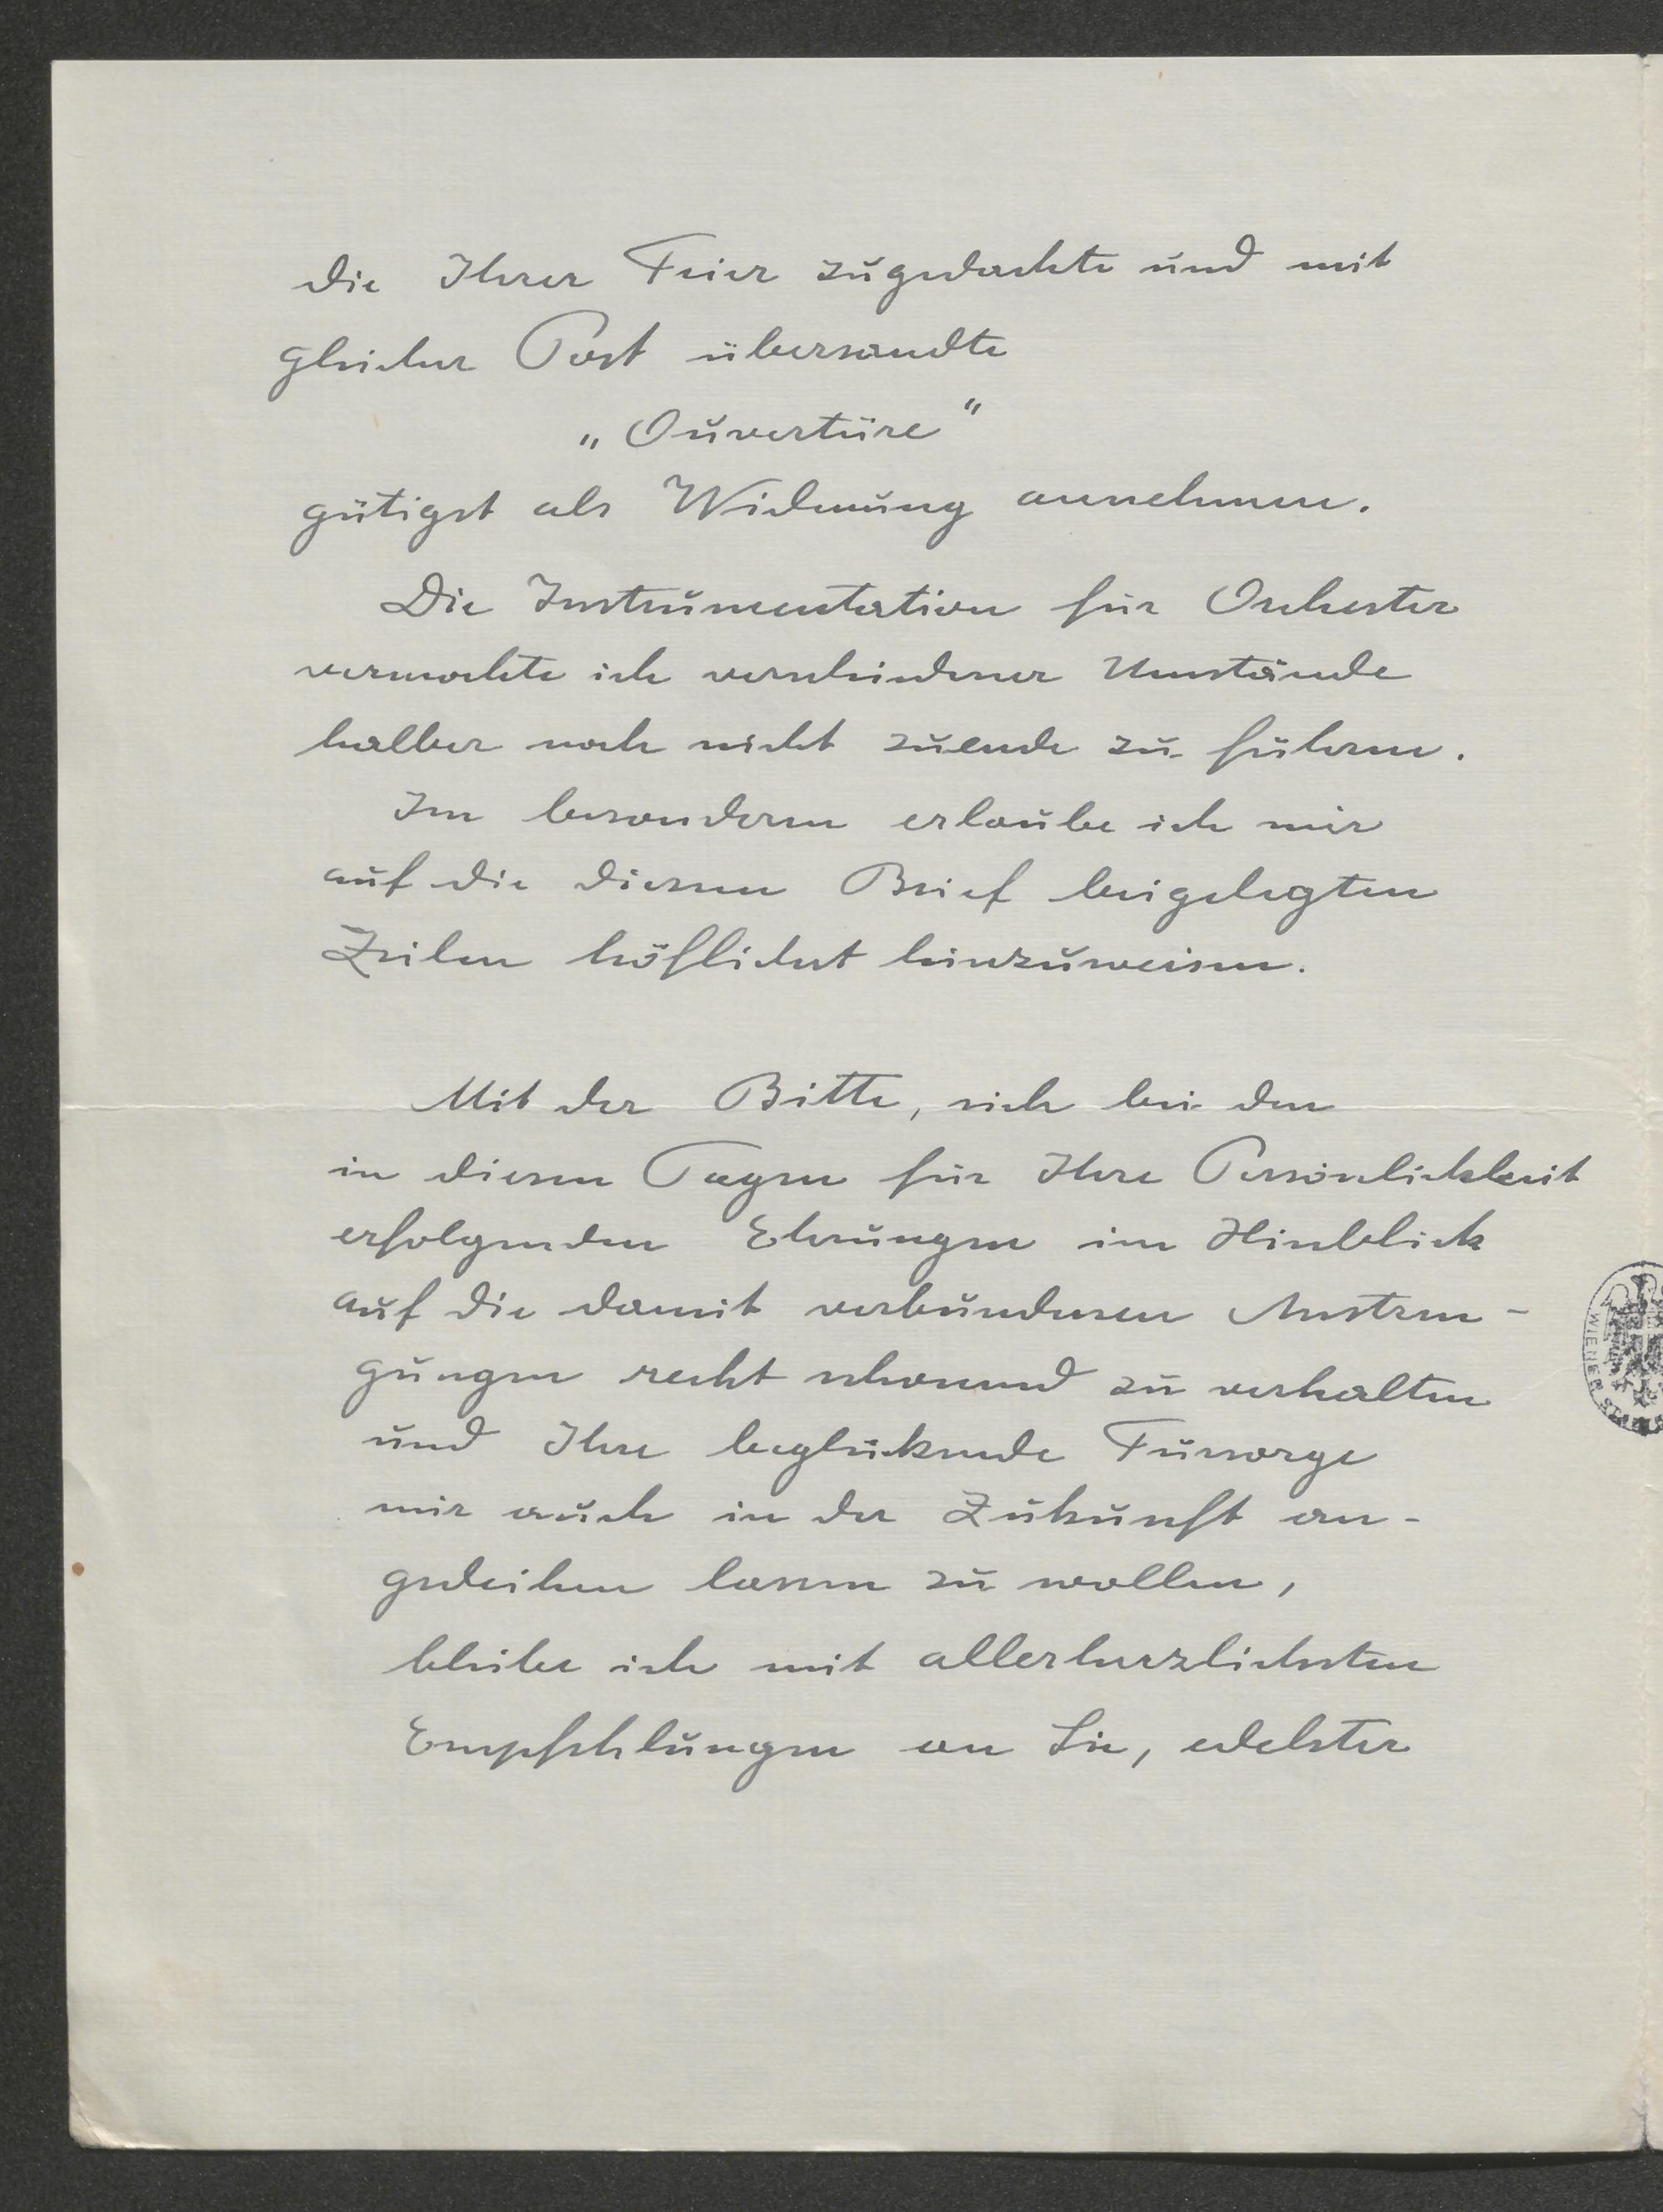 die Ihrer Feier zugedachte und mit
gleicher Post übersandte
„Ouvertüre“
gütigst als Widmung annehmen.
Die Instrumentation für Orchester
vermochte ich verschiedener Umstände
halber noch nicht zuende zu führen.
Im besonderen erlaube ich mir
auf die diesem Brief beigelegten
Zeilen höflichst hinzuweisen.
Mit der Bitte, sich bei den
in diesen Tagen für Ihre Persönlichkeit
erfolgenden Ehrungen im Hinblick
auf die damit verbundenen Anstren-
gungen recht schonend zu verhalten
und Ihre beglückende Fürsorge
mir auch in der Zukunft an-
gedeihen lassen zu wollen,
bleibe ich mit allerherzlichsten
Empfehlungen an Sie, edelster
WIENER STA